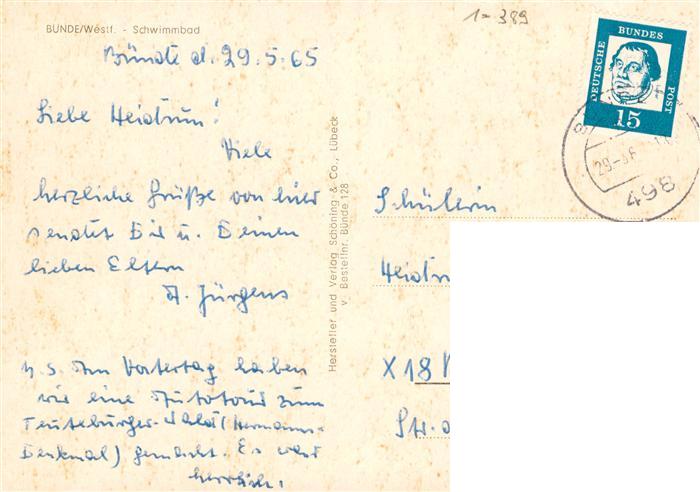 1= 389
BÜNDE/Westf. - Schwimmbad
Bünde d. 29.5.65
Liebe Heidrun!
Viele
herzliche Grüße von hier
sendet Dir u. Deinen
lieben Eltern
A. Jürgens
N.S. Am Vatertag haben
wir eine Autotour zum
Teuteburger-Wald (Hermanns-
Denkmal) gemacht. Es war
herrlich!
Hersteller und Verlag Schöning & Co., Lübeck
v. Bestellnr. Bünde 128
DEUTSCHE BUNDES POST
15
29.-5.6
498
Schülerin
Heidru
X18
Str. d